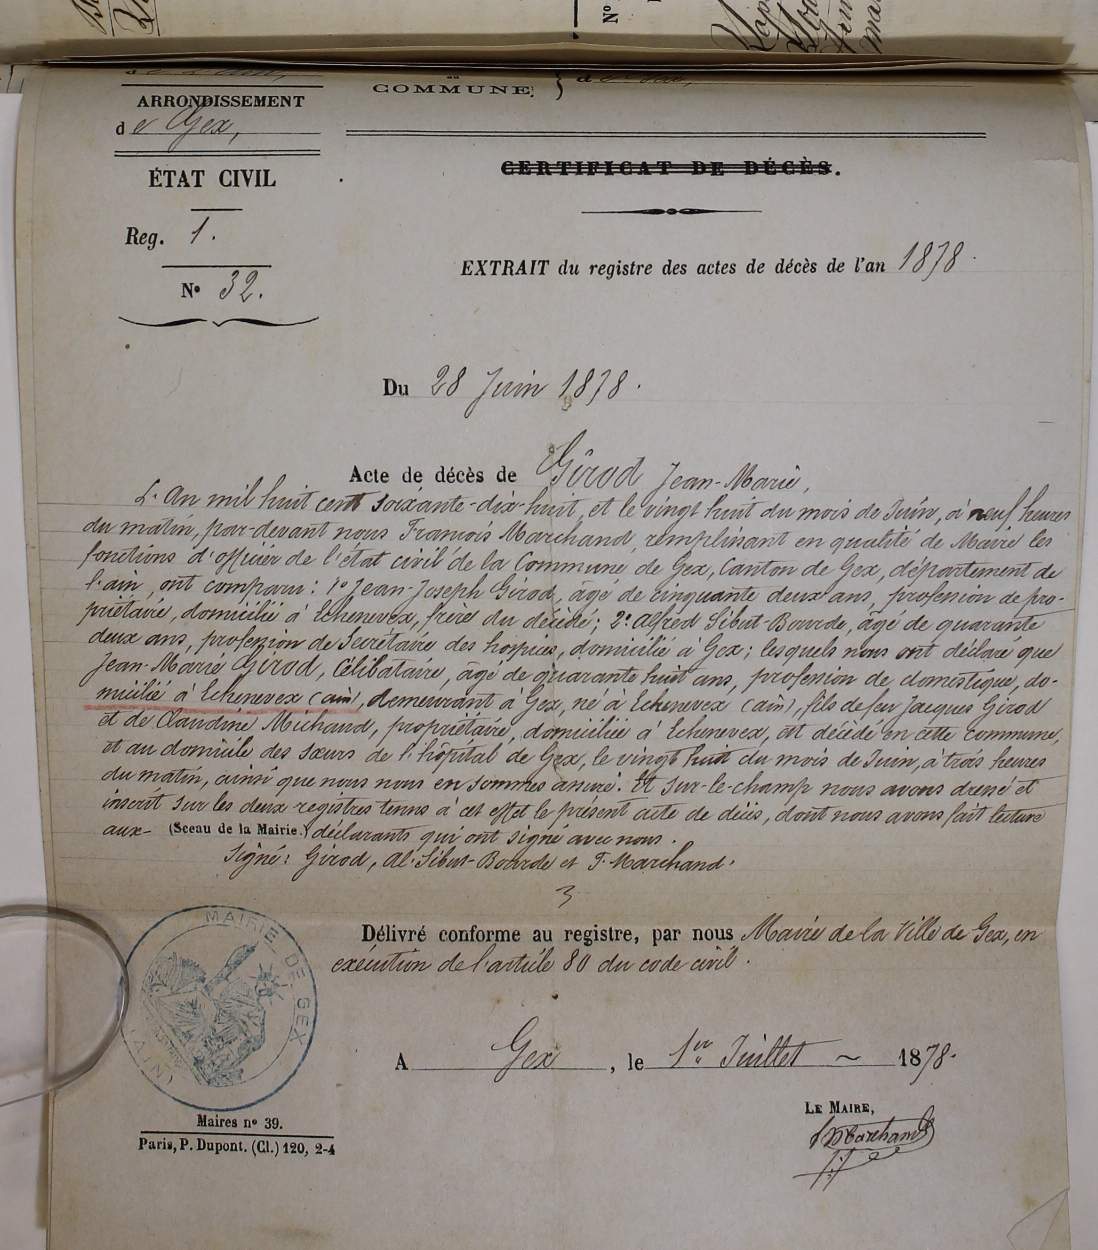 COMMUNE.
ARRONDISSEMENT
de Gex,
ÉTAT CIVIL
Reg. 1.
N° 32.
CERTIFICAT DE DÉCÈS.
EXTRAIT du registre des actes de décès de l'an 1878.
Du 28 Juin 1878.
Acte de décès de Girod Jean-Marie,
L'an mil huit cent soixante-dix-huit, et le vingt huit du mois de Juin, à neuf heures
du matin, par-devant nous François Marchand, remplissant en qualité de Maire les
fonctions d'officier de l'état civil de la Commune de Gex, Canton de Gex, département de
l'ain, ont comparu: 1° Jean-Joseph Girod, âgé de cinquante deux ans, profession de pro-
priétaire, domicilié à Echenevex, frère du décédé; 2° Alfred Sibut-Bourde, âgé de quarante
deux ans, profession de Secrétaire des hospices, domicilié à Gex; lesquels nous ont déclaré que
Jean-Marie Girod, Célibataire, âgé de quarante huit ans, profession de domestique, do-
micilié à Echenevex (ain), demeurant à Gex, né à Echenevex (ain), fils de feu Jacques Girod
et de Claudine Michaud, propriétaire, domiciliée à Echenevex, est décédé en cette commune,
et au domicile des sœurs de l'hôpital de Gex, le vingt huit du mois de Juin, à trois heures
du matin, ainsi que nous nous en sommes assuré. Et sur-le-champ nous avons dressé et
inscrit sur les deux registres tenus à cet effet le présent acte de décès, dont nous avons fait lecture
aux- (Sceau de la Mairie.) déclarants qui ont signé avec nous.
Signé: Girod, Al. Sibut-Bourde et F. Marchand.
Délivré conforme au registre, par nous Maire de la Ville de Gex, en
exécution de l'article 80 du code civil.
MAIRIE DE GEX
(AIN)
A Gex, le 1er Juillet ~ 1878.
LE MAIRE,
F Marchand
Maires n° 39.
Paris, P. Dupont. (Cl.) 120, 2-4